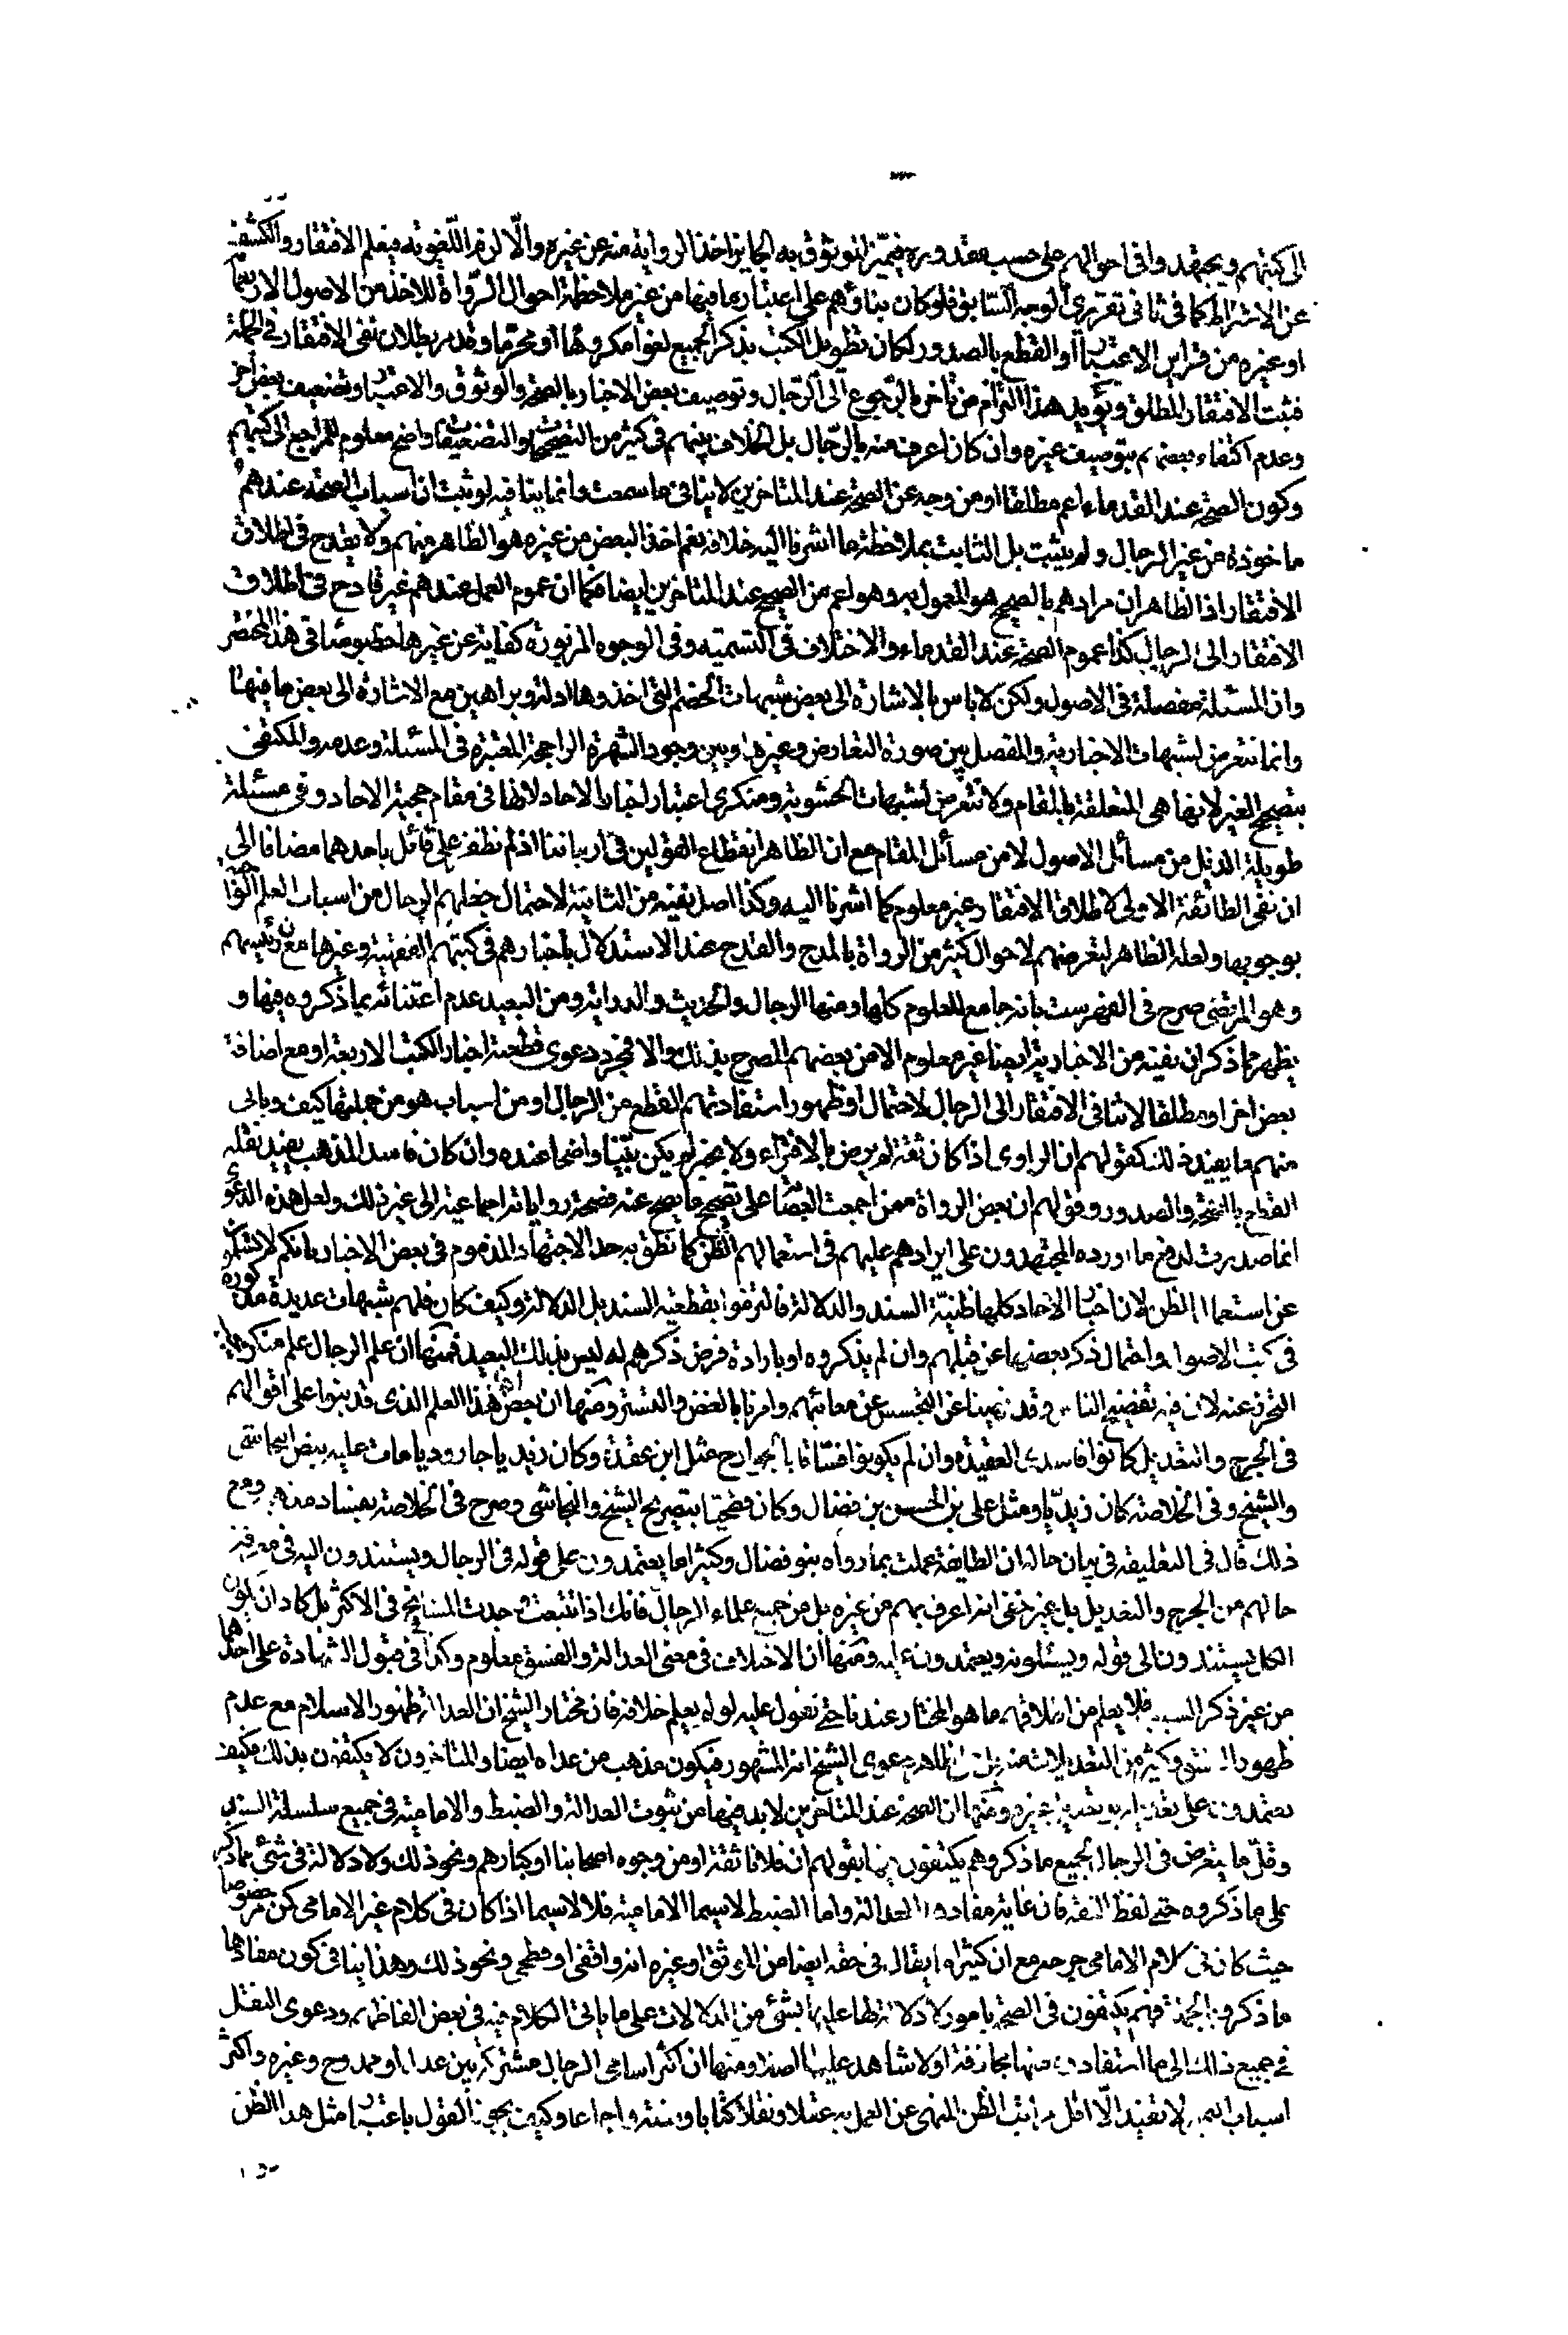 الى كتبهم ويجتهدوا فى احوالهم على حسب مقدوره فيميّز الموثوق به الجايز اخذ الرواية منه عن غيره والّا لزم اللّغوية فيعلم الافتقار والكشف
عن الاشراط كما فى ثانى تقريرى الوجه السّابق فلو كان بناؤهم على اعتبار ما فيها من غير ملاحظة احوال الرّواة للاخذ من الاصول الاربعمأ
او غيره من قراين الاعتبار او القطع بالصدور لكان تطويل الكتب بذكر الجميع لغوا مكروها او محرّما وقد مر بطلان نفى الافتقار فى الجملة
فثبت الافتقار المطلق ويؤيد هذا التزام من تأخر بالرّجوع الى الرّجال وتوصيف بعض الاخبار بالصحة والوثوق والاعتبار وتضعيف بعض اخر
وعدم اكتفاء بعضهم بتوصيف غيره وان كان اعرف منه بالرّجال بل الخلاف بينهم فى كثير من التصحيحات والتضعيفات واضح معلوم للمراجع الى كتبهم
وكون الصحة عند القدماء اعم مطلقا او من وجه عن الصحة عند المتاخرين لا ينافى ما سمعت وانما ينافيه لو ثبت ان اسباب الصحة عندهم
ماخوذة من غير الرجال ولم يثبت بل الثابت بملاحظة ما اشرنا اليه خلافه نعم اخذ البعض من غيره هو الظاهر منهم ولا يقدح فى اطلاق
الافتقار اذ الظاهر ان مرادهم بالصحيح هو المعمول به وهو اعم من الصحيح عند المتاخرين ايضا فكما ان عموم العمل عندهم غير قادح فى اطلاق
الافتقار الى الرجال كذا عموم الصحة عند القدماء والاختلاف فى التسمية وفى الوجوه المزبورة كفاية عن غيرها خصوصا فى هذا المختصر
وان المسئلة مفصلة فى الاصول ولكن لا باس بالاشارة الى بعض شبهات الخصم التى اخذوها ادلة وبراهين مع الاشارة الى بعض ما فيها
وانما نتعرض لشبهات الاخبارية والمفصل بين صورة التعارض وغيرها وبين وجود الشهرة الراجحة المعتبرة فى المسئلة وعدمه والمكتفى
بتصحيح الغير لانها هى المتعلقة بالمقام ولا نتعرض لشبهات الحشوية ومنكرى اعتبار اخبار الاحاد لانها فى مقام حجية الاحاد وفى مسئلة
طويلة الذيل من مسائل الاصول لا من مسائل المقام مع ان الظاهر انقطاع القولين فى ازماننا اذ لم نظفر على قائل باحدهما مضافا الى
ان نفى الطائفة الاولى لاطلاق الافتقار غير معلوم كما اشرنا اليه وكذا اصل نفيه من الثانية لاحتمال جعلهم الرجال من اسباب العلم
بوجوبها ولعله الظاهر لتعرضهم لاحوال كثير من الرواة بالمدح والقدح عند الاستدلال باخبارهم فى كتبهم الفقهية وغيرها مع ان رئيسهم
وهو المرتضى صرح فى الفهرست بانه جامع للعلوم كلها ومنها الرجال والحديث والدراية ومن البعيد عدم اعتنائه بما ذكروه فيها و
يظهر مما ذكر ان نفيه من الاخبارية ايضا غير معلوم الا من بعضهم المصرح بذلك والا فمجرد دعوى قطعية اخبار الكتب الاربعة او مع اضافة
بعض اخر او مطلقا لا تنافى الافتقار الى الرجال لاحتمال او ظهور استفادتهم القطع من الرجال او من اسباب هو من جملتها كيف وياتى
منهم ما يفيد ذلك كقولهم ان الراوى اذا كان ثقة لم يرض بالافتراء ولا بخبر لم يكن بيّنا واضحا عنده وان كان فاسد المذهب يفيد نقله
القطع بالصحة والصدور وقولهم ان بعض الرواة ممن اجمعت العصابة على تصحيح ما يصح عنه فصحة رواياته اجماعية الى غير ذلك ولعل هذه الدعوى
انما صدرت لدفع ما اورده المجتهدون على ايرادهم عليهم فى استعمالهم الظن كما نطق به حد الاجتهاد المذموم فى بعض الاخبار بانكم لا تنفكون
عن استعمال الظن لان اخبار الاحاد كلها ظنيّة السند والدلالة فالتزموا بقطعية السند بل الدلالة وكيف كان فلهم شبهات عديدة مذكورة
فى كتب الاصول واحتمال ذكر بعضها عن قبلهم وان لم يذكروه او بارادة فرض ذكرهم له ليس بذلك البعيد فمنها ان علم الرجال علم منكر يجب
التحرز عنه لان فيه تفضيح الناس وقد نهينا عن التجسس عن معائبهم وامرنا بالغض والتستر ومنها ان بعض اهل هذا العلم الذى قد بنوا على اقوالهم
فى الجرح والتعديل كانوا فاسدى العقيدة وان لم يكونوا فسّاقا بالجوارح مثل ابن عقدة وكان زيديا جاروديا مات عليه بنص النجاشى
والشيخ وفى الخلاصة كان زيديّا ومثل على بن الحسن بن فضال وكان فطحيّا بتصريح الشيخ والنجاشى وصرح فى الخلاصة بفساد مذهبه ومع
ذلك قال فى التعليقة فى بيان حاله ان الطايفة عملت بما رواه بنو فضال وكثيرا ما يعتمدون على قوله فى الرجال ويستندون اليه فى معرفة
حالهم من الجرح والتعديل بل غير خفى انه اعرف بهم من غيره بل من جميع علماء الرجال فانك اذا تتبعت وجدت المشايخ فى الاكثر بل كاد ان يكون
الكل يستندون الى قوله ويسئلونه ويعتمدون عليه ومنها ان الاختلاف فى معنى العدالة والفسق معلوم وكذا فى قبول الشهادة على احدهما
من غير ذكر السبب فلا يعلم من اطلاقهم ما هو المختار عندنا حتى نعول عليه لو لم يعلم خلافه فان مختار الشيخ ان العدالة ظهور الاسلام مع عدم
ظهور الفسق وكثير من التعديلات منه بل ظاهر دعوى الشيخ انه المشهور فيكون مذهب من عداه ايضا والمتاخرون لا يكتفون بذلك فكيف
يعتمدون على تعديله وتعديل غيره ومنها ان الصحة عند المتاخرين لا بد فيها من ثبوت العدالة والضبط والامامية فى جميع سلسلة السند
وقلّ ما يتعرض فى الرجال لجميع ما ذكر وهم يكتفون فيها بقولهم ان فلانا ثقة او من وجوه اصحابنا او كبارهم ونحو ذلك ولا دلالة فى شئ مما ذكر
على ما ذكروه حتى لفظ الثقة فان غاية مفاده العدالة واما الضبط لا سيما الامامية فلا لا سيما اذا كان فى كلام غير الامامى كمن مر خصوصا
حيث كان فى كلام الامامى جرحه مع ان كثيرا ما يقال فى حقه ايضا من الموثق او غيره انه واقفى او فطحى ونحو ذلك وهذا ينافى كون مفادها
ما ذكر وبالجملة فهم يكتفون فى الصحة بامور لا دلالة لها عليها بشئ من الدلالات على ما ياتى الكلام فيه فى بعض الفاظهم ودعوى النقل
فى جميع ذلك الى ما استفادوه منها مجازفة اولا شاهد عليها اصلا ومنها ان اكثر اسامى الرجال مشتركة بين عدل او ممدوح وغيره واكثر
اسباب التميز لا تفيد الّا اقل مراتب الظن المنهى عن العمل به عقلا ونقلا كتابا وسنة واجماعا وكيف يجوز القول باعتبار مثل هذا الظن